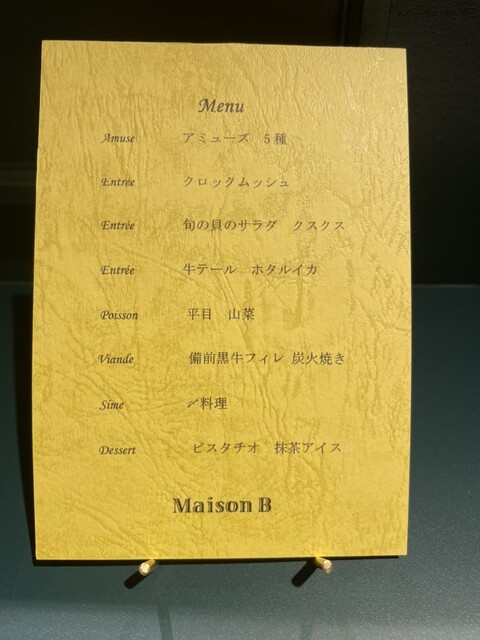 Menu
Amuse アミューズ 5種
Entrée クロックムッシュ
Entrée 旬の貝のサラダ クスクス
Entrée 牛テール ホタルイカ
Poisson 平目 山菜
Viande 備前黒牛フィレ 炭火焼き
Sime 〆料理
Dessert ピスタチオ 抹茶アイス
Maison B